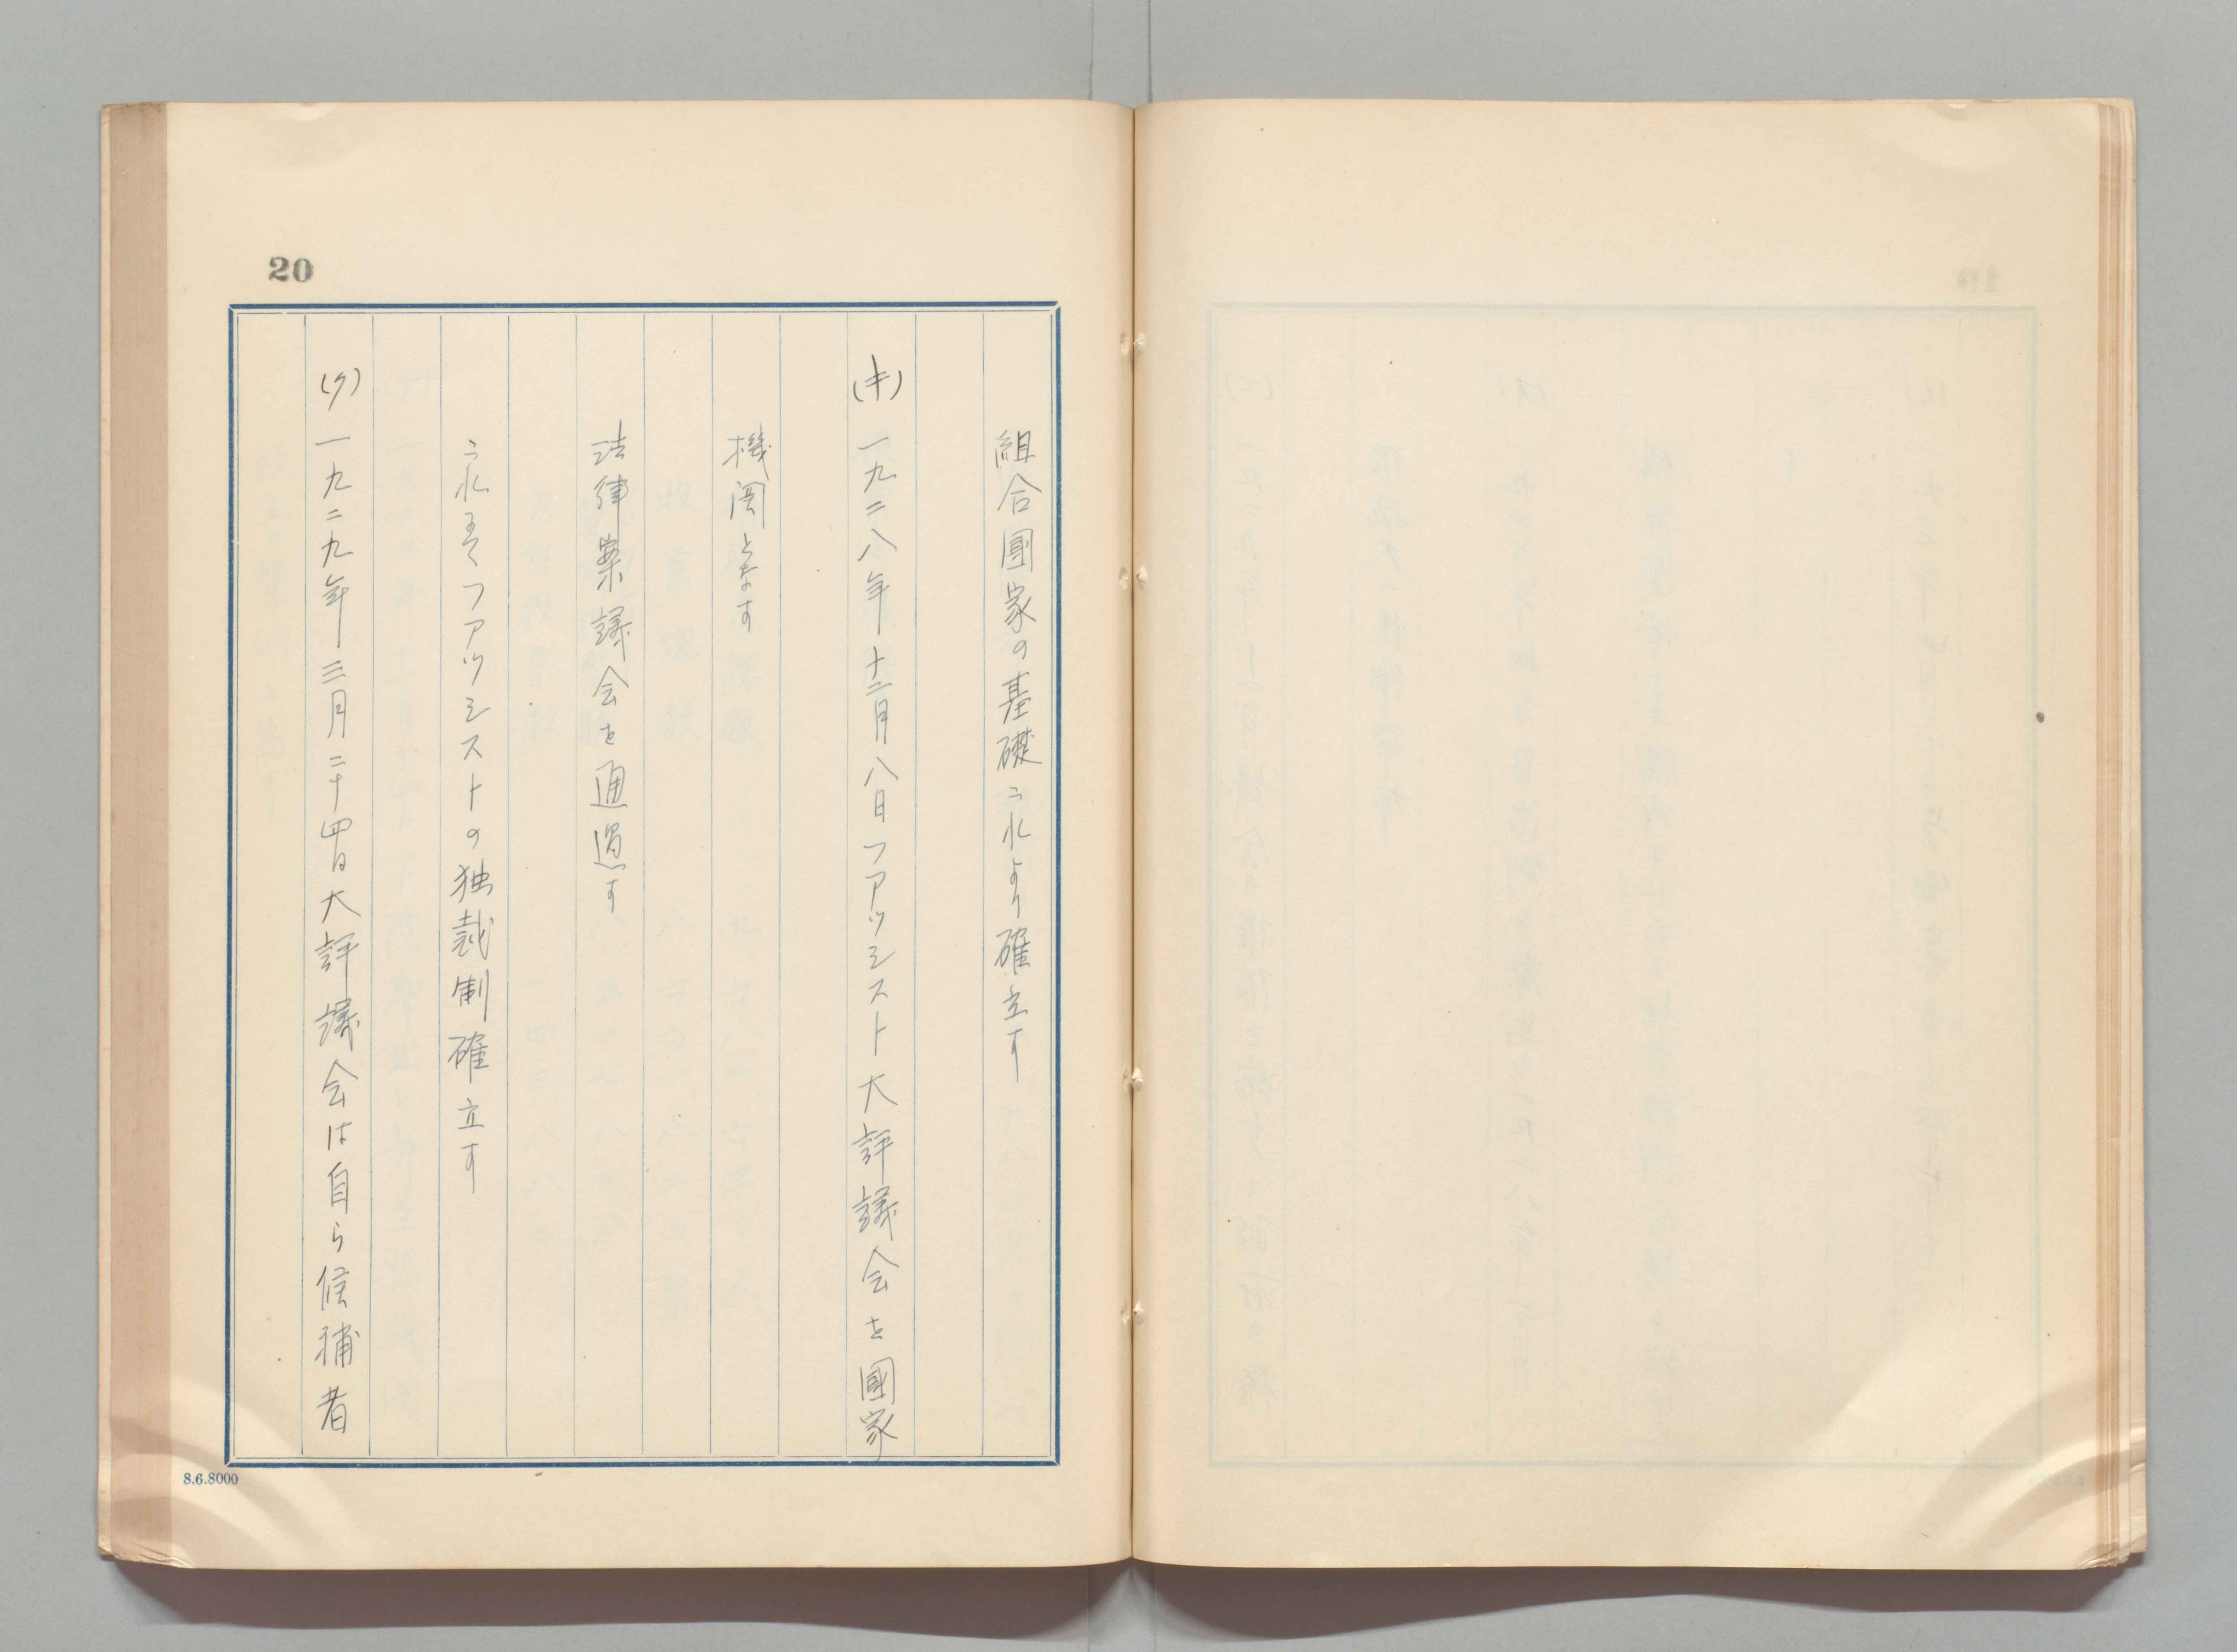 20
組合團家の基礎これより確立す
(キ)一九二八年十二月八日フアツシスト大評議会を國家
機関となす
法律案議会を通過す
これよりフアツシストの独裁制確立す
(ク)一九二九年三月二十四日大評議会は自ら候補者
8.6.8000